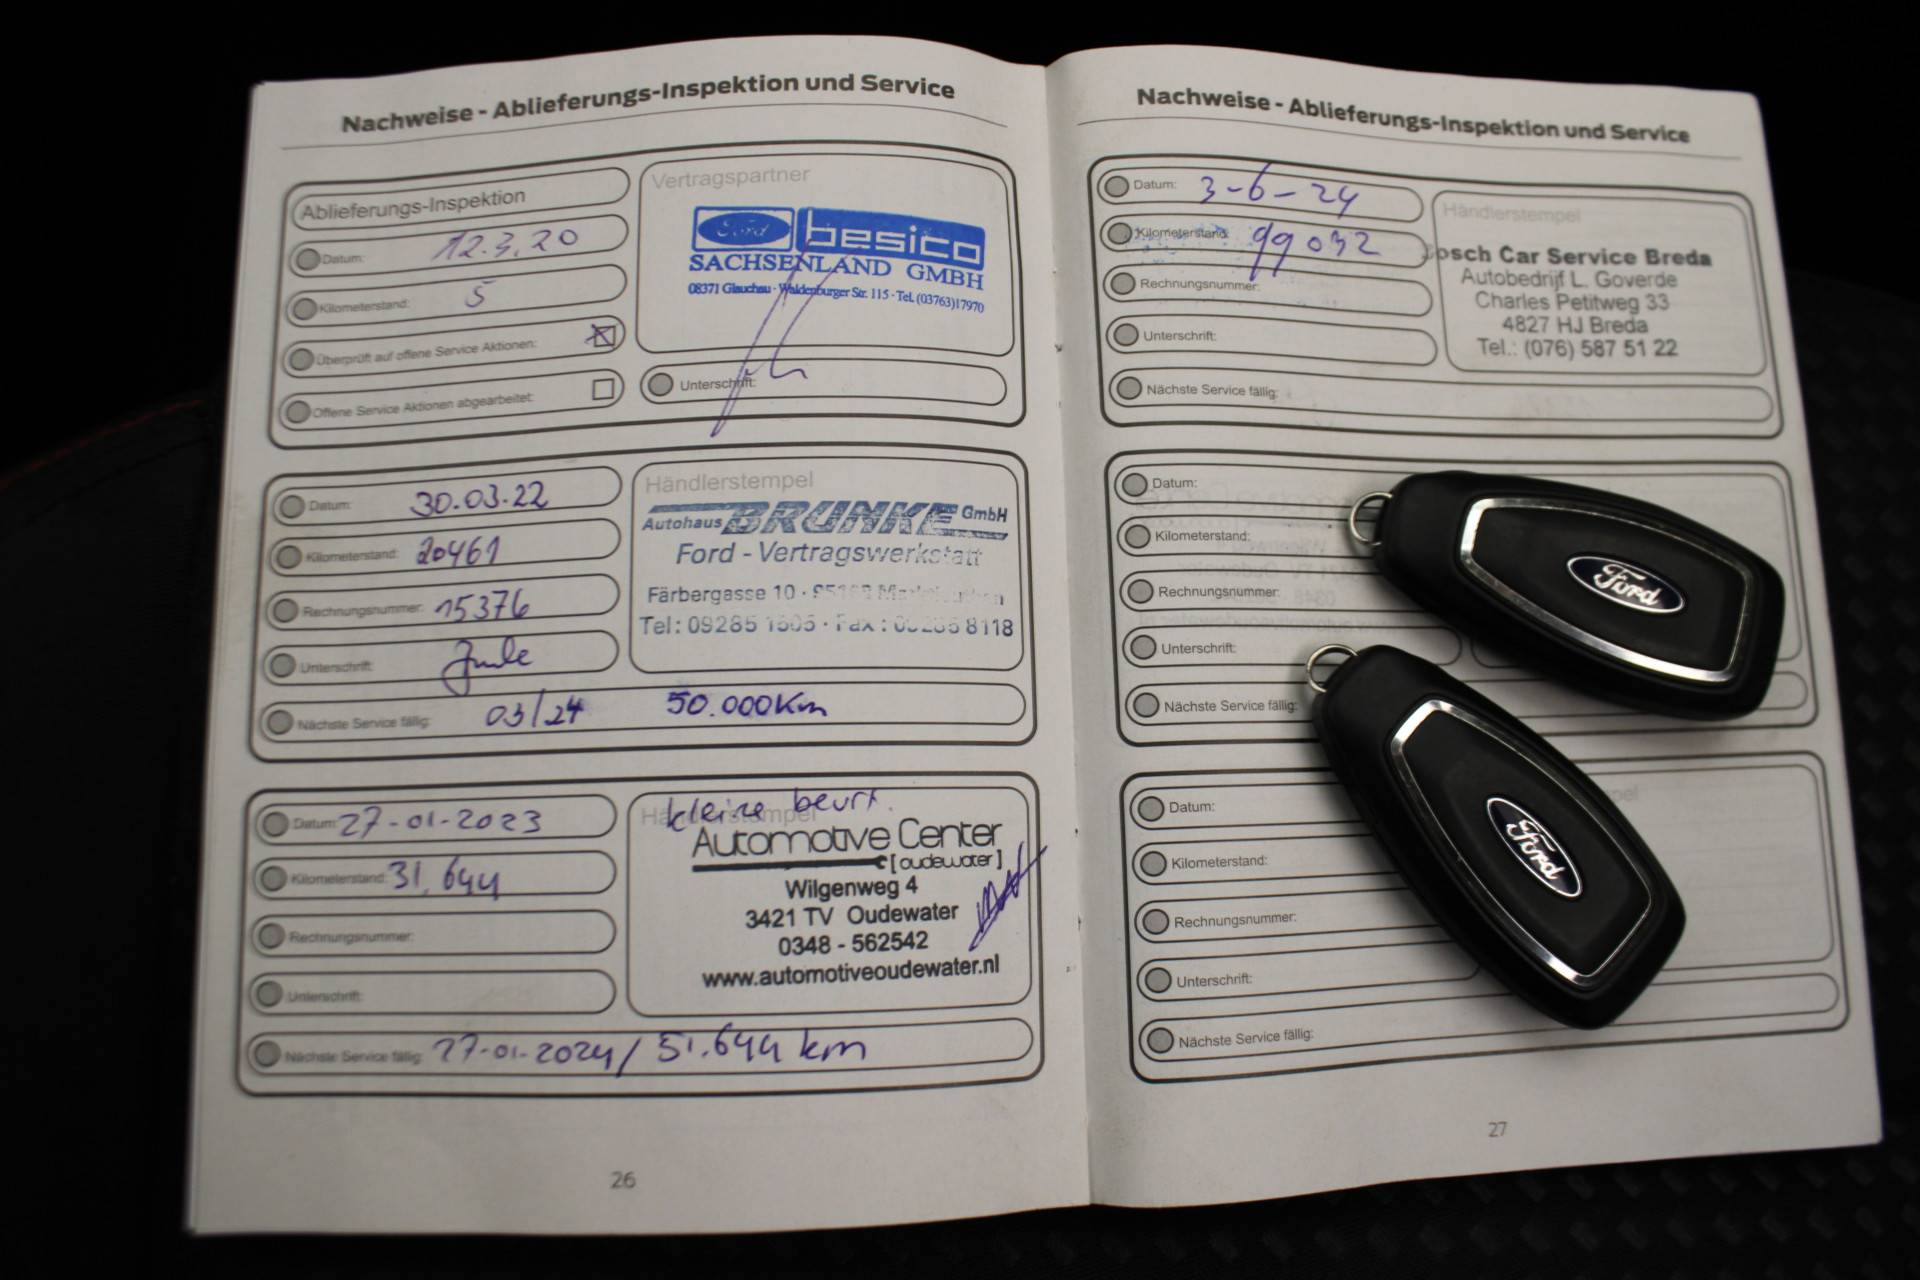 Nachweise - Ablieferungs-Inspektion und Service
Ablieferungs-Inspektion
Datum: 12.3.20
Kilometerstand: 5
Überprüft auf offene Service Aktionen:
Offene Service Aktionen abgearbeitet:
Vertragspartner
Ford besico
SACHSENLAND GMBH
08371 Glauchau · Waldenburger Str. 115 · Tel. (03763)17970
Unterschrift:
Datum: 30.03.22
Kilometerstand: 20461
Rechnungsnummer: 15376
Unterschrift:
Nächste Service fällig: 03/24 50.000Km
Händlerstempel
Autohaus BRUNKE GmbH
Ford - Vertragswerkstatt
Färbergasse 10
Tel: 09285 Fax: 8118
Datum: 27-01-2023
Kilometerstand: 31.644
Rechnungsnummer:
Unterschrift:
Nächste Service fällig: 27-01-2024 / 51.644 km
kleine beurt.
Händlerstempel
Automotive Center
[oudewater]
Wilgenweg 4
3421 TV Oudewater
0348 - 562542
www.automotiveoudewater.nl
26
Nachweise - Ablieferungs-Inspektion und Service
Datum: 3-6-24
Kilometerstand: 99032
Rechnungsnummer:
Unterschrift:
Nächste Service fällig:
Händlerstempel
Bosch Car Service Breda
Autobedrijf L. Goverde
Charles Petitweg 33
4827 HJ Breda
Tel.: (076) 587 51 22
Datum:
Kilometerstand:
Rechnungsnummer:
Unterschrift:
Nächste Service fällig:
Ford
Datum:
Kilometerstand:
Rechnungsnummer:
Unterschrift:
Nächste Service fällig:
Ford
27